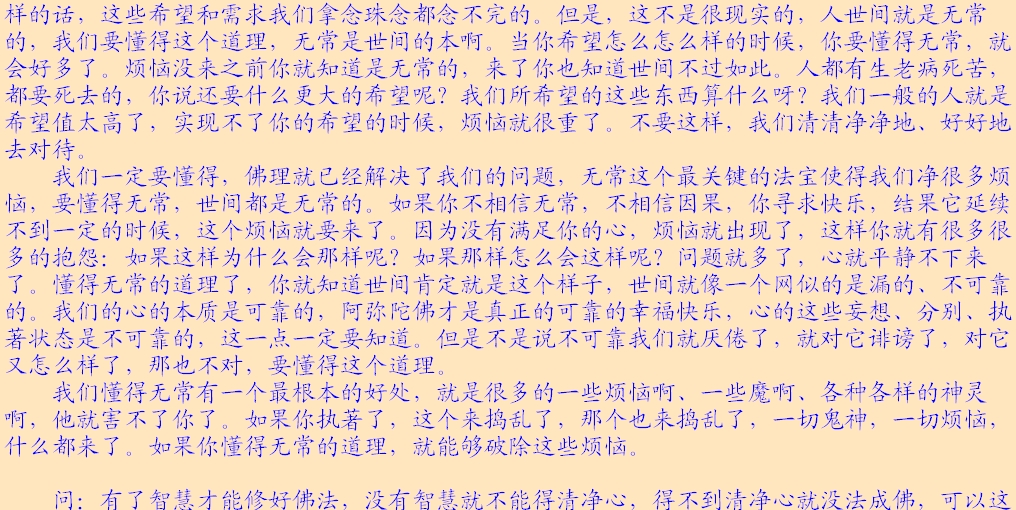 样的话，这些希望和需求我们拿念珠念都念不完的。但是，这不是很现实的，人世间就是无常
的，我们要懂得这个道理，无常是世间的本啊。当你希望怎么怎么样的时候，你要懂得无常，就
会好多了。烦恼没来之前你就知道是无常的，来了你也知道世间不过如此。人都有生老病死苦，
都要死去的，你说还要什么更大的希望呢？我们所希望的这些东西算什么呀？我们一般的人就是
希望值太高了，实现不了你的希望的时候，烦恼就很重了。不要这样，我们清清净净地、好好地
去对待。
我们一定要懂得，佛理就已经解决了我们的问题，无常这个最关键的法宝使得我们净很多烦
恼，要懂得无常，世间都是无常的。如果你不相信无常，不相信因果，你寻求快乐，结果它延续
不到一定的时候，这个烦恼就要来了。因为没有满足你的心，烦恼就出现了，这样你就有很多很
多的抱怨：如果这样为什么会那样呢？如果那样怎么会这样呢？问题就多了，心就平静不下来
了。懂得无常的道理了，你就知道世间肯定就是这个样子，世间就像一个网似的是漏的、不可靠
的。我们的心的本质是可靠的，阿弥陀佛才是真正的可靠的幸福快乐，心的这些妄想、分别、执
著状态是不可靠的，这一点一定要知道。但是不是说不可靠我们就厌倦了，就对它诽谤了，对它
又怎么样了，那也不对，要懂得这个道理。
我们懂得无常有一个最根本的好处，就是很多的一些烦恼啊、一些魔啊、各种各样的神灵
啊，他就害不了你了。如果你执著了，这个来捣乱了，那个也来捣乱了，一切鬼神，一切烦恼，
什么都来了。如果你懂得无常的道理，就能够破除这些烦恼。
问：有了智慧才能修好佛法，没有智慧就不能得清净心，得不到清净心就没法成佛，可以这